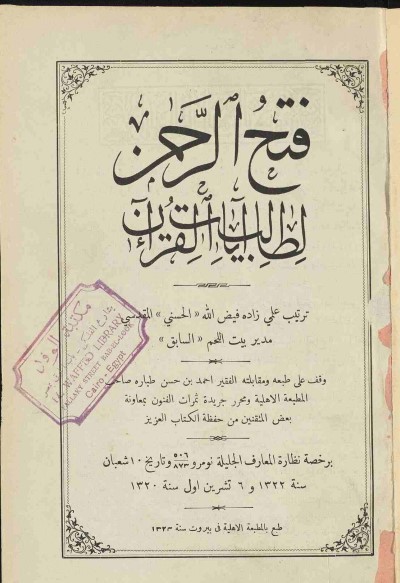 فتح الرحمن
لطالب آيات القرآن
ترتيب علمي زاده فيض الله « الحسني » المقدسي
مدير بيت اللحم « السابق »
وقف على طبعه ومقابلته الفقير احمد بن حسن طباره صاحب
المطبعة الاهلية ومحرر جريدة ثمرات الفنون بمعاونة
بعض المتقنين من حفظة الكتاب العزيز
برخصة نظارة المعارف الجليلة نومرو ٥٠٦ ٨٧٣ وتاريخ ١٠ شعبان
سنة ١٣٢٢ و ٦ تشرين اول سنة ١٣٢٠
طبع بالمطبعة الاهلية في بيروت سنة ١٣٢٣
LIBRARY
Cairo - Egypt